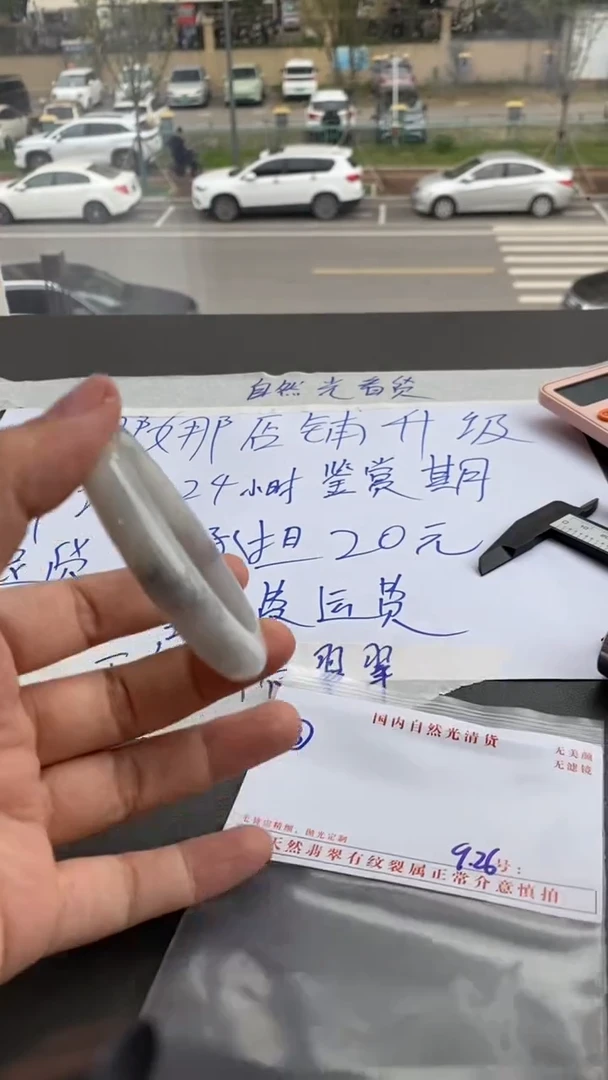 自然光看货
娜店铺升级
24小时鉴赏期
退货 担20元
运费
翡翠
国内自然光清货
无美颜
无滤镜
无镶宝精雕，抛光定制
926号：
天然翡翠有纹裂属正常介意慎拍